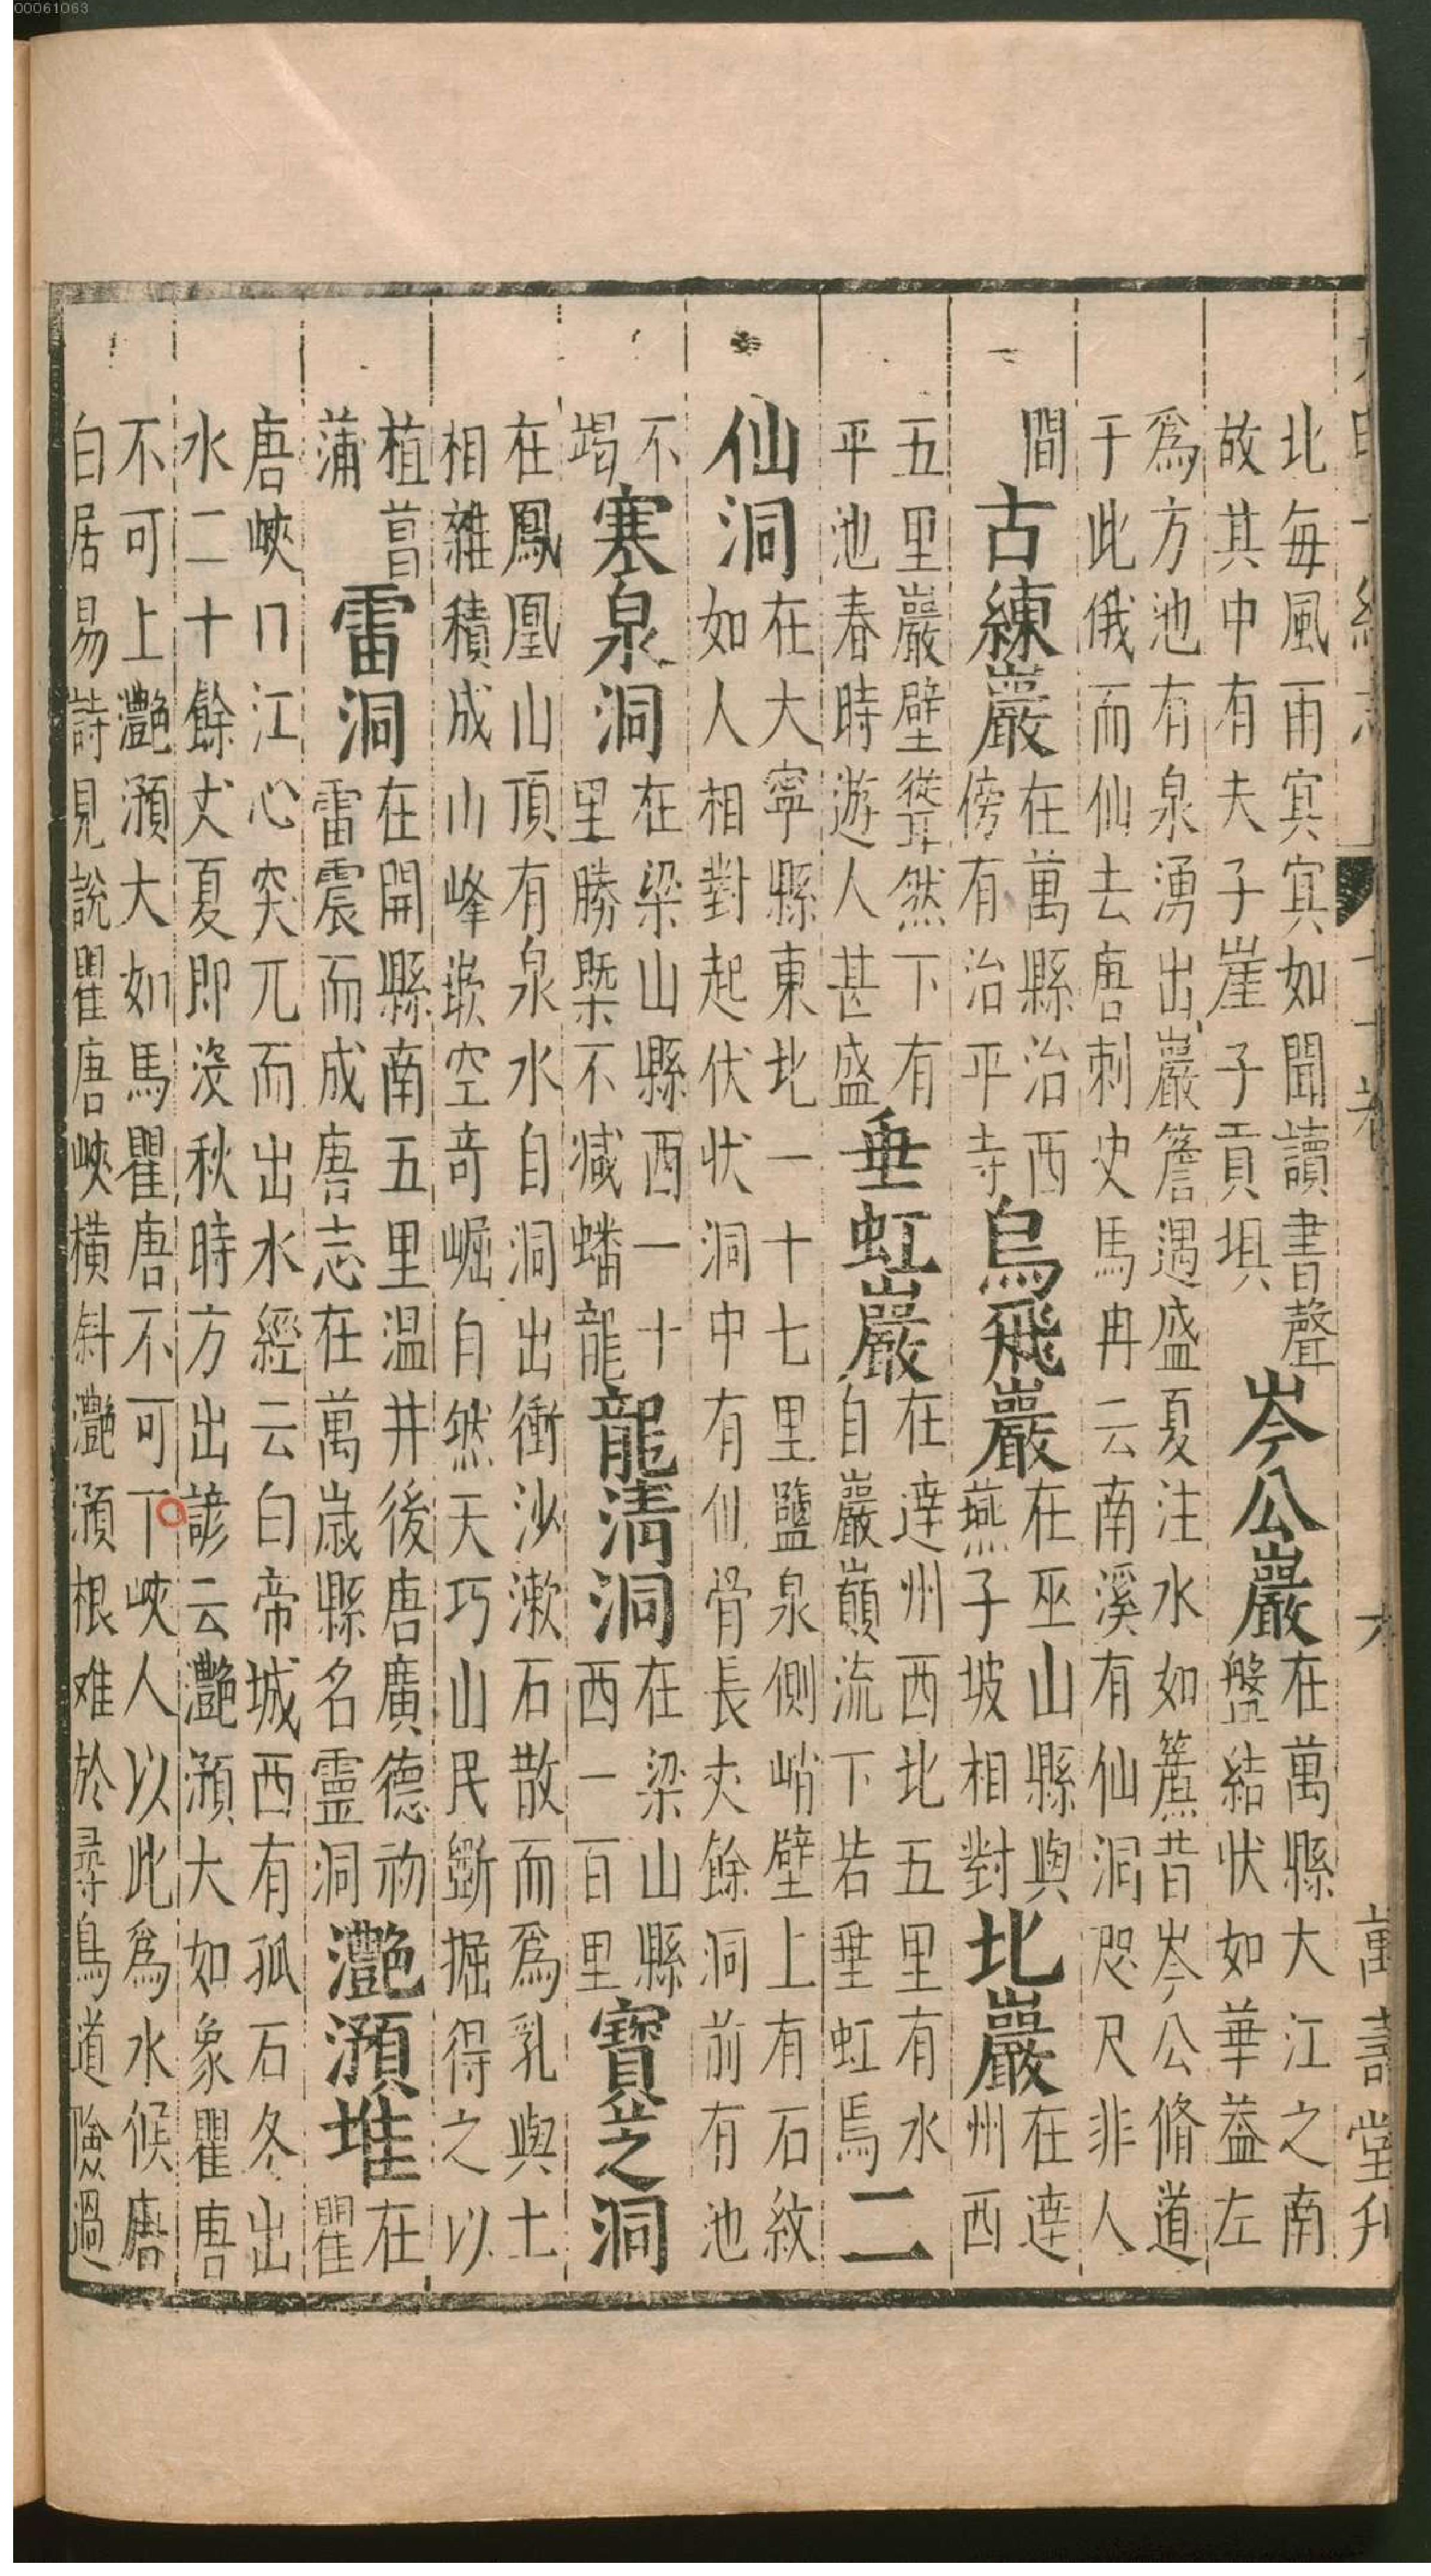 北每風雨寘寘如聞讀書聲
故其中有夫子崖子貢埧
岑公巖
在萬縣大江之南
盤結状如華葢左
爲方池有泉湧出巖簷遇盛夏注水如簾昔岑公脩道
于此俄而仙去唐刺史馬冉云南溪有仙洞咫尺非人
間
古練巖
在萬縣治西
傍有治平寺
烏飛巖
在巫山縣與
燕子坡相對
北巖
在達
州西
五里巖壁聳然下有
平池春時遊人甚盛
垂虹巖
在達州西北五里有水
自巖巔流下若垂虹焉
二
仙洞
在大寧縣東北一十七里鹽泉側峭壁上有石紋
如人相對起伏状洞中有仙骨長丈餘洞前有池
不
竭
塞泉洞
在梁山縣西一十
里勝槩不減蟠龍
龍淸洞
在梁山縣
西一百里
寶芝洞
在鳳凰山頂有泉水自洞出衝沙漱石散而爲乳與土
相雜積成小峰嵌空竒崛自然天巧山民斷掘得之以
植菖
蒲
雷洞
在開縣南五里温井後唐廣德初
雷震而成唐志在萬歳縣名靈洞
灔澦堆
在
瞿
唐峽口江心突兀而出水經云白帝城西有孤石冬出
水二十餘丈夏即没秋時方出諺云灔澦大如象瞿唐
不可上灔澦大如馬瞿唐不可下峽人以此爲水候唐
白居易詩見說瞿唐峽横斜灔澦根难於尋鳥道險過
萬壽堂刋
00061063